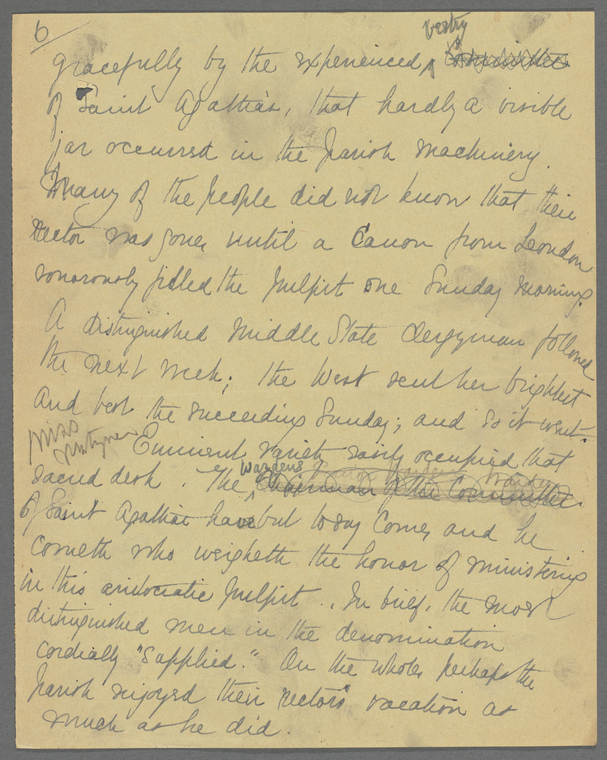 6
vestry
gracefully by the experienced ^ committee
of Saint Agatha's, that hardly a visible
jar occurred in the parish machinery.
Many of the people did not know that their
rector was gone, until a Canon from London
sonorously filled the pulpit one Sunday morning.
A distinguished Middle State clergyman followed
the next week; the West sent her brightest
and best the succeeding Sunday; and so it went.
Miss
Eminent variety easily occupied that
sacred desk. The ^ Wardens Chairman of the Committee
of Saint Agatha have but to say Come, and he
cometh who weigheth the honor of ministering
in this aristocratic pulpit. In brief, the most
distinguished men in the denomination
cordially "supplied." On the whole, perhaps the
parish enjoyed their rector's vacation as
much as he did.